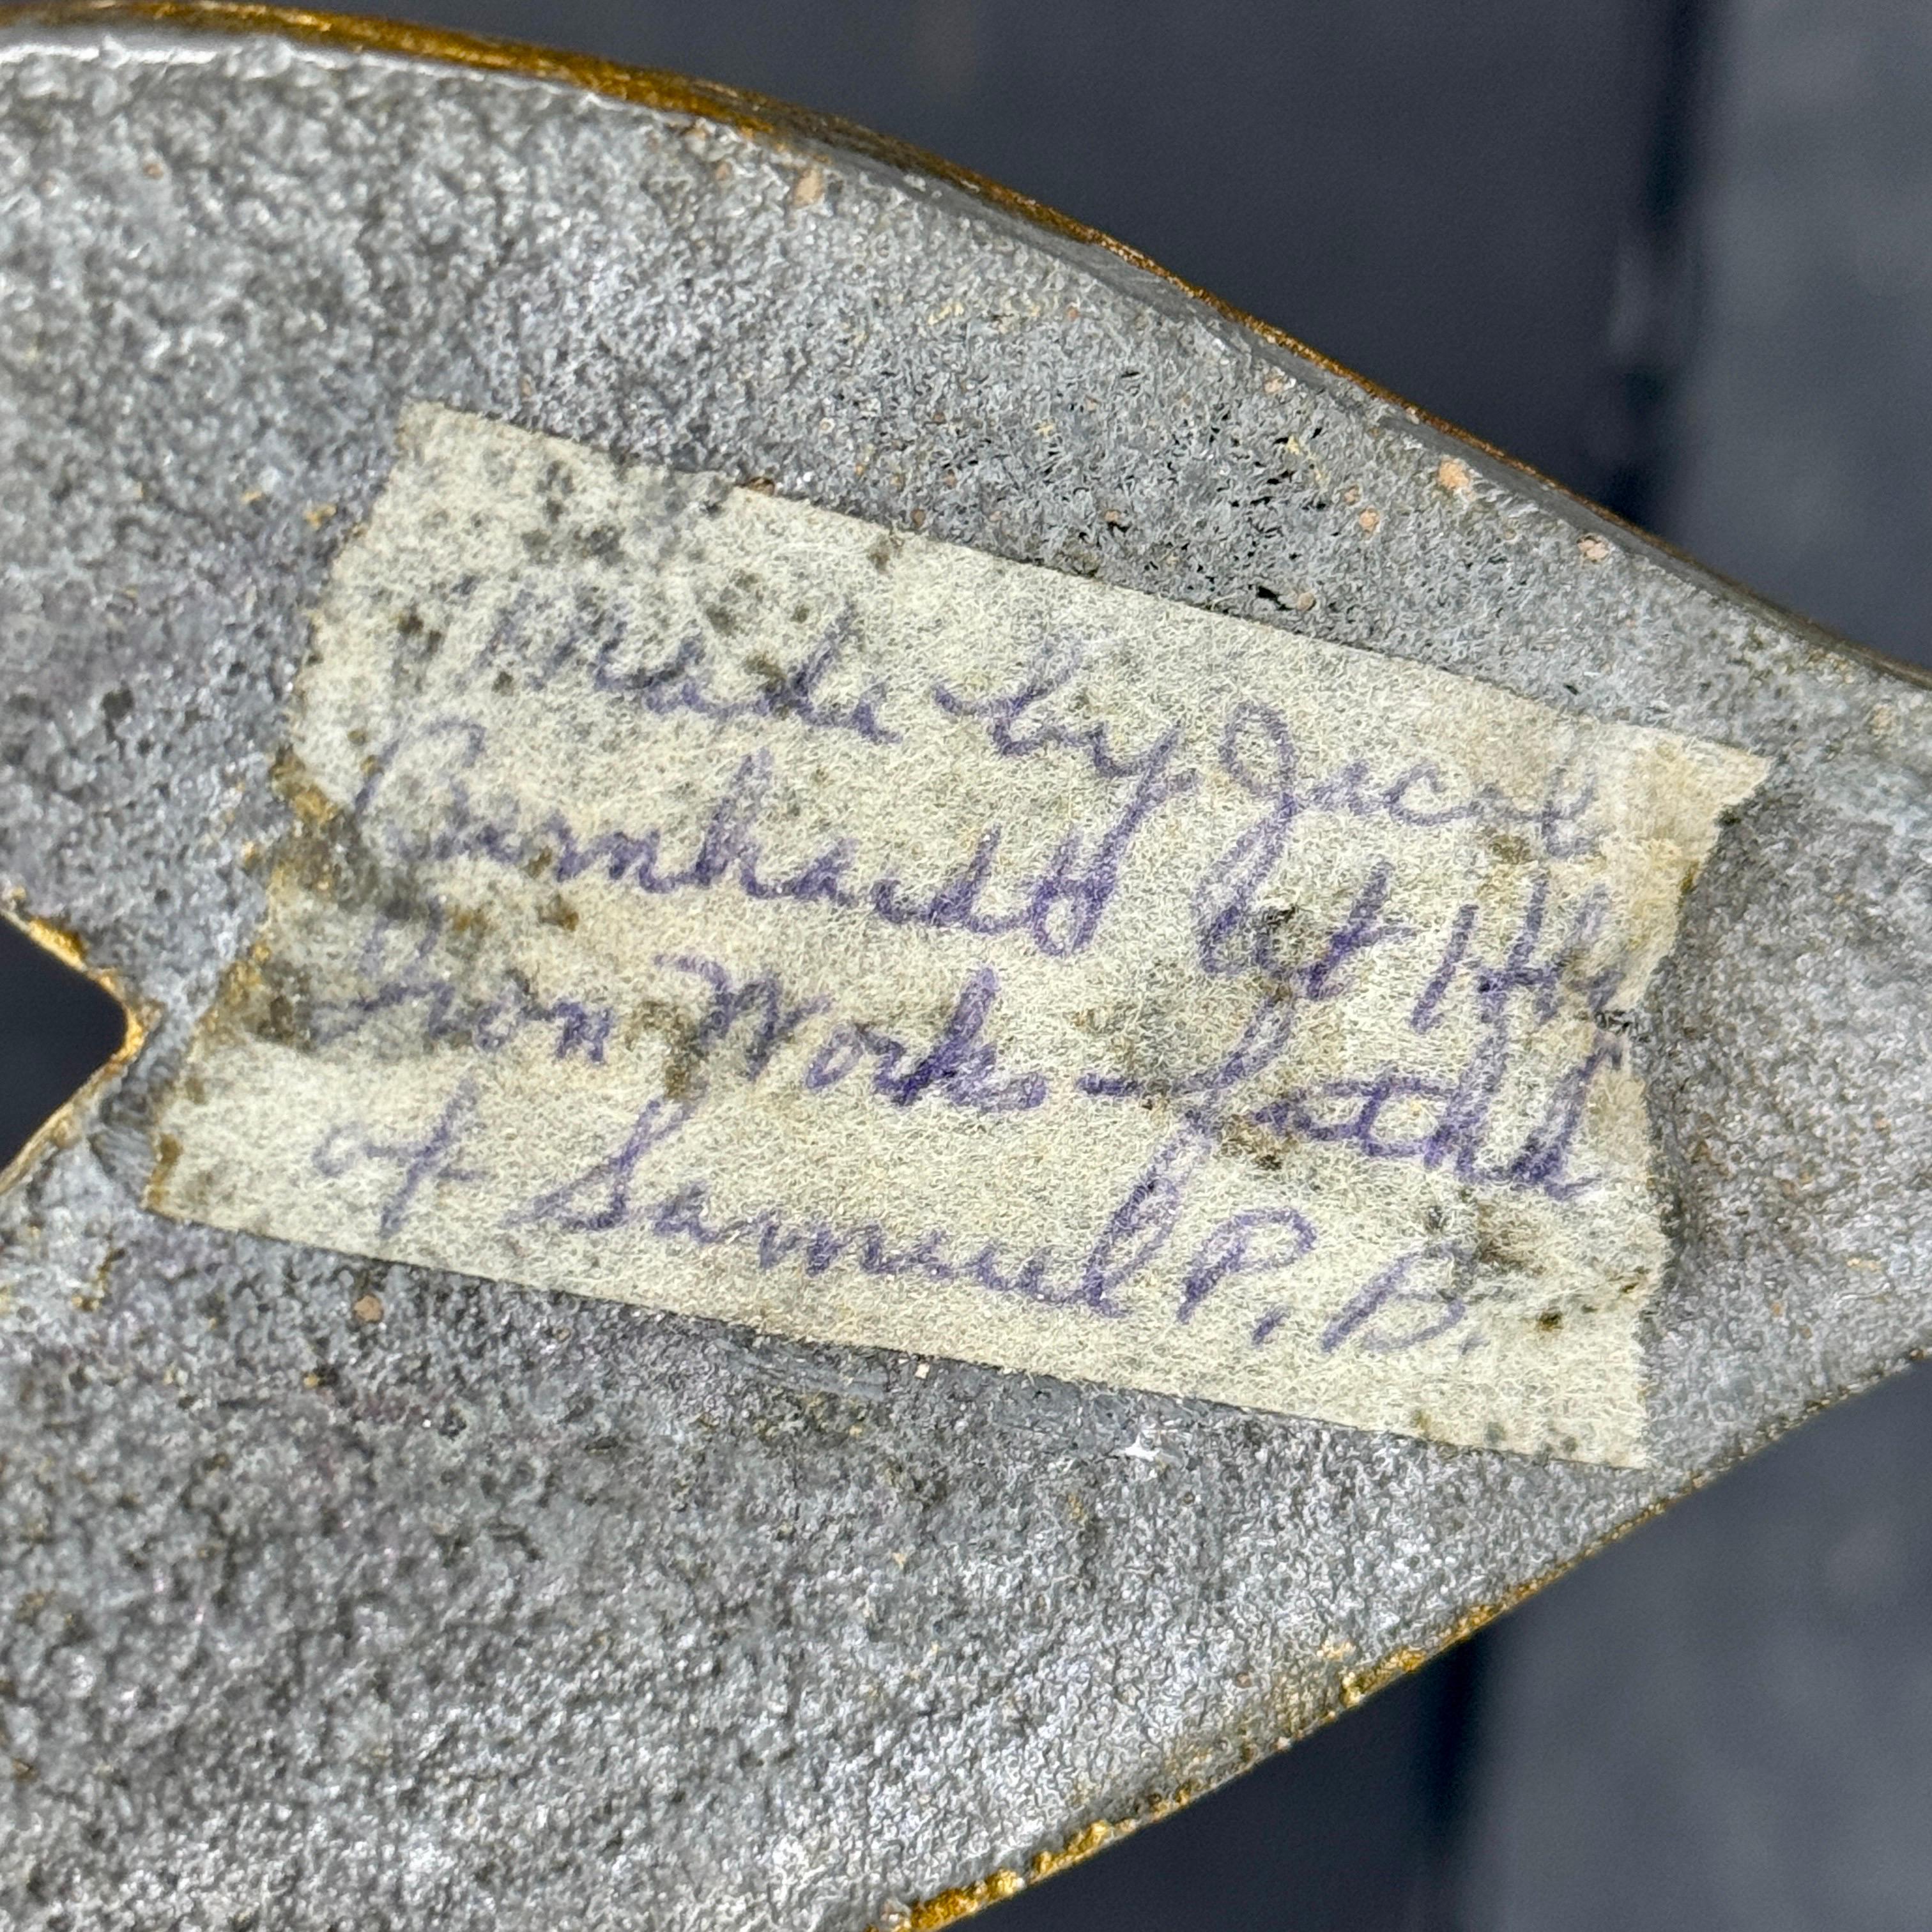 Made by Jacob
Barnhardt at His
Iron Works - Father
of Samuel P. B.